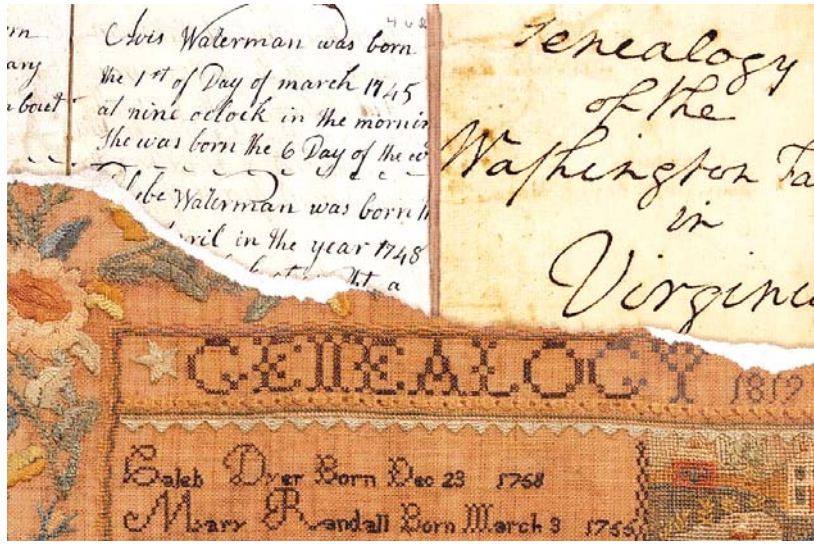 rn
ary
n bout
Avis Waterman was born
the 1st of Day of march 1745
at nine oclock in the mornin
she was born the 6 Day of the
Waterman was born
ril in the year 1748
at a
Genealogy
of the
Washington Fa
in
Virginia
GENEALOGY 1819
Caleb Dyer Born Dec 23 1758
Mary Randall Born March 3 1755